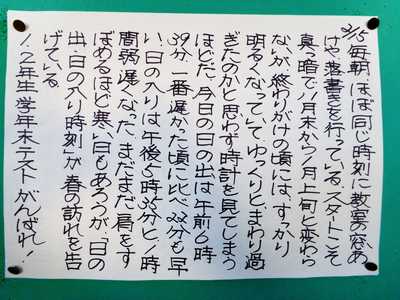 2/15 毎朝、ほぼ同じ時刻に教室の窓あ
けや落書きを行っている。スタートこそ
真っ暗で1月末から1月上旬と変わら
ないが、終わりがけの頃には、すっかり
明るくなっていて、ゆっくりとまわり過
ぎたのかと思わず時計を見てしまう
ほどだ。今日の日の出は午前6時
39分。一番遅かった頃に比べ22分も早
い。日の入りは午後5時35分と1時
間弱遅くなった。まだまだ肩をす
ぼめるほど寒い日もあろうが、「日の
出・日の入り時刻」が春の訪れを告
げている。
1、2年生学年末テストがんばれ！